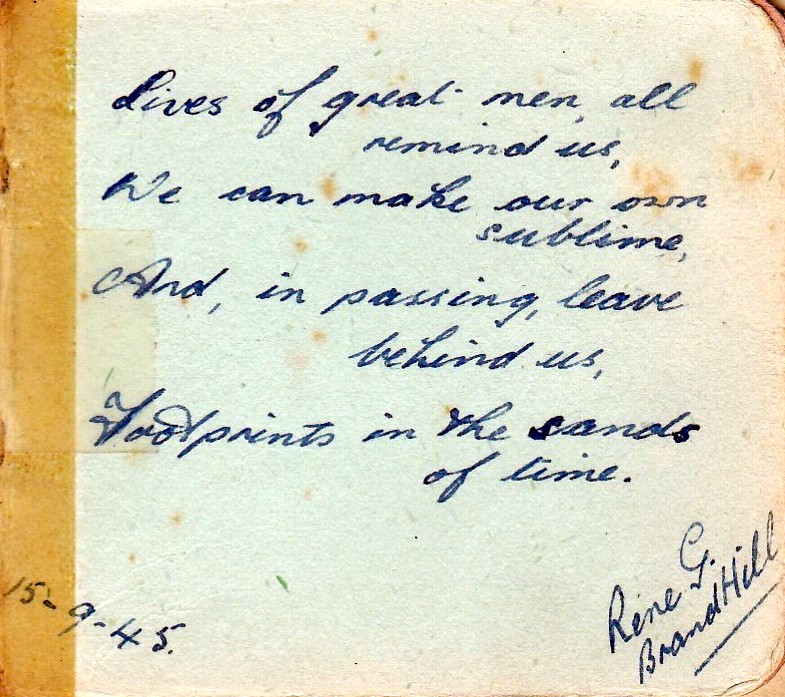 Lives of great men, all
remind us,
We can make our own
sublime,
And, in passing, leave
behind us,
Footprints in the sands
of time.
15-9-45.
Rene G.
Brand Hill